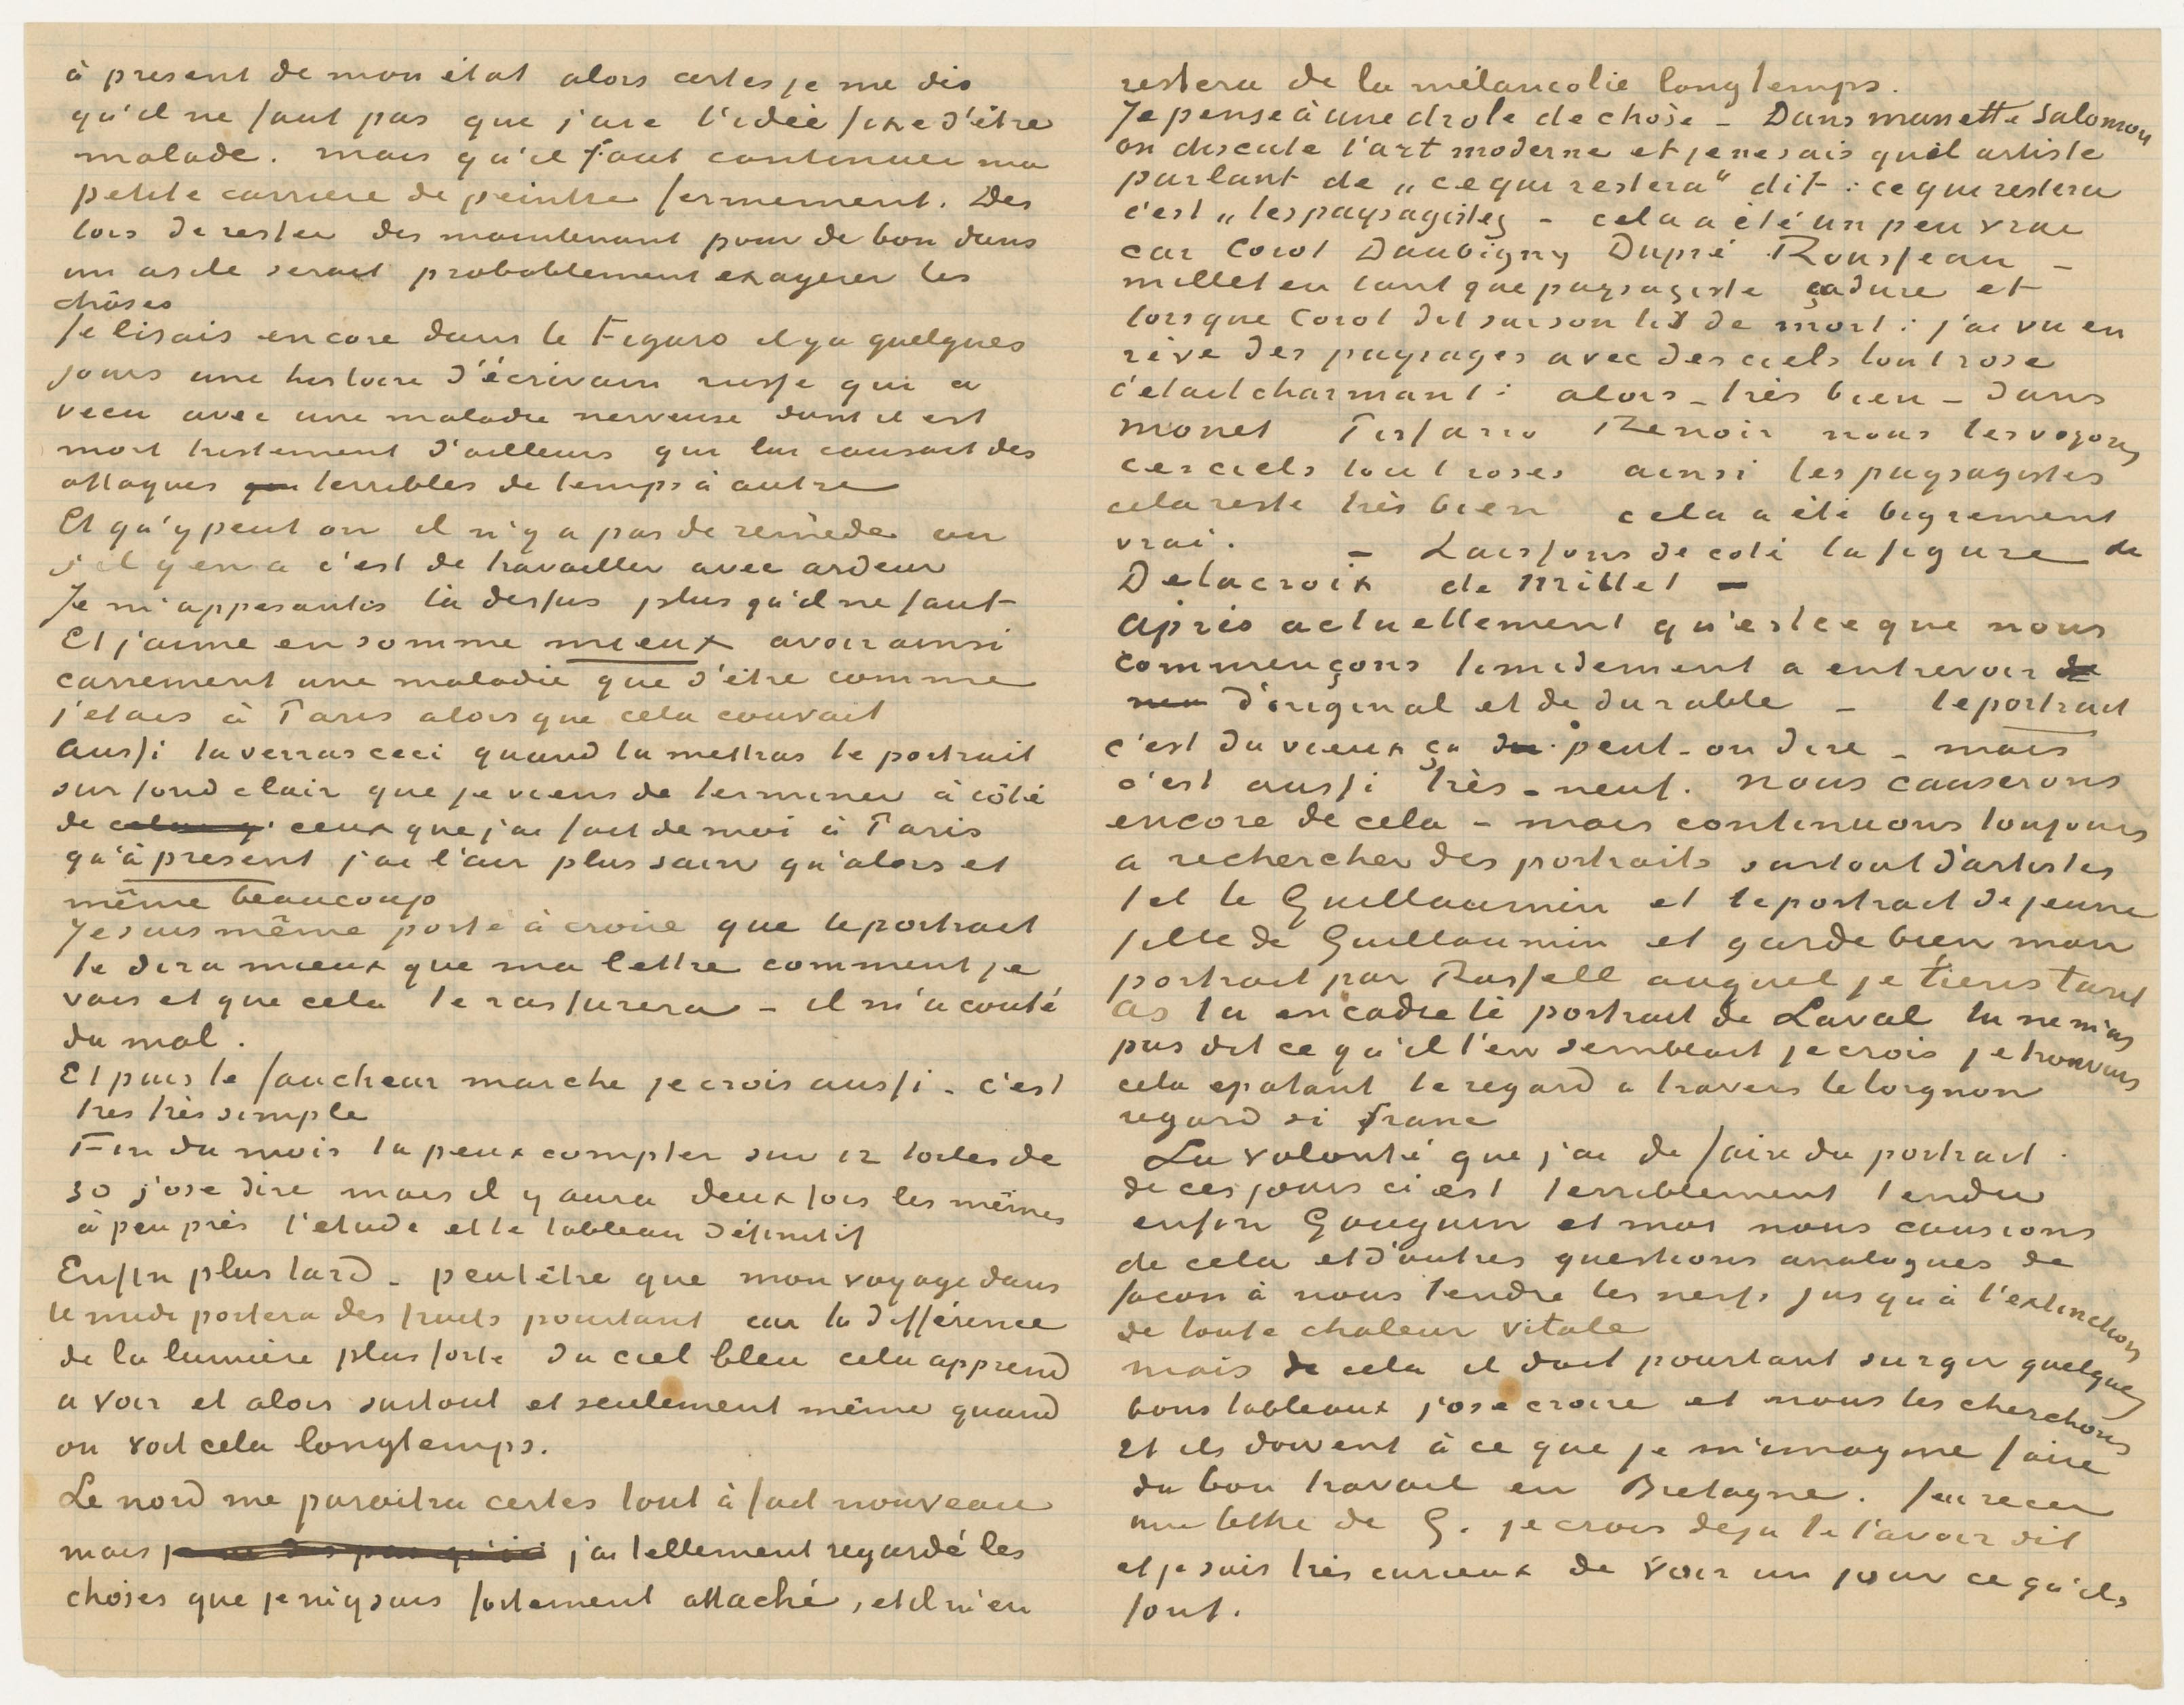 à present de mon état alors certes je me dis
qu'il ne faut pas que j'aie l'idée fixe d'être
malade. mais qu'il faut continuer ma
petite carriere de peintre fermement. Des
lors de rester des maintenant pour de bon dans
un asile serait probablement exagerer les
chôses
Je lisais encore dans le Figaro il y a quelques
jours une histoire d'écrivain russe qui a
vecu avec une maladie nerveuse dont il est
mort tristement d'ailleurs qui lui causait des
attaques terribles de temps à autre
Et qu'y peut on il n'y a pas de remède ou
s'il y en a c'est de travailler avec ardeur
Je m'appesantis là dessus plus qu'il ne faut
Et j'aime en somme mieux avoir ainsi
carrement une maladie que d'être comme
j'etais à Paris alors que cela couvait
Aussi tu verras ceci quand tu mettras le portrait
sur fond clair que je viens de terminer à côté
de ceux que j'ai fait de moi à Paris
qu'à present j'ai l'air plus sain qu'alors et
même beaucoup
Je suis même porté à croire que le portrait
te dira mieux que ma lettre comment je
vais et que cela te rassurera – il m'a couté
du mal.
Et puis le faucheur marche je crois aussi – c'est
tres très simple
Fin du mois tu peux compter sur 12 toiles de
30 j'ose dire mais il y aura deux fois les mêmes
à peu près l'etude et le tableau définitif
Enfin plus tard – peut être que mon voyage dans
le midi portera des fruits pourtant car la différence
de la lumière plus forte du ciel bleu cela apprend
a voir et alors surtout et seulement même quand
on voit cela longtemps.
Le nord me paraitra certes tout à fait nouveau
mais j'ai tellement regardé les
choses que je m'y suis fortement attaché, et il m'en
restera de la mélancolie longtemps.
Je pense à une drole de chôse – Dans manette Salomon
on discute l'art moderne et je ne sais quel artiste
parlant de „ce qui restera" dit : ce qui restera
c'est „les paysagistes – cela a été un peu vrai
car Corot Daubigny Dupré Rousseau –
millet en tant que paysagiste ça dure et
lorsque Corot dit sur son lit de mort : j'ai vu en
rève des paysages avec des ciels tout rose
c'etait charmant : alors – très bien – dans
monet Pissarro Renoir nous les voyons
ces ciels tout roses ainsi les paysagistes
cela reste très bien cela a été bigrement
vrai. – Laissons de coté la figure de
Delacroix de Millet –
Après actuellement qu'est ce que nous
commençons timidement a entrevoir de
d'original et de durable – le portrait
c'est du vieux ça peut-on dire – mais
c'est aussi très-neuf. Nous causerons
encore de cela – mais continuons toujours
a rechercher des portraits surtout d'artistes
tel le Guillaumin et le portrait de jeune
fille de Guillaumin et garde bien mon
portrait par Russell auquel je tiens tant
As tu encadré le portrait de Laval tu ne m'as
pas dit ce qu'il t'en semblait je crois je trouvais
cela epatant le regard a travers le lorgnon
regard si franc
La volonté que j'ai de faire du portrait
de ces jours ci est terriblement tendu
enfin Gauguin et moi nous causions
de cela et d'autres questions analogues de
facon à nous tendre les nerfs jusqu'à l'extinction
de toute chaleur vitale
mais de cela il doit pourtant surgir quelques
bons tableaux j'ose croire et nous les cherchons
et ils doivent à ce que je m'imagine faire
du bon travail en Bretagne. J'ai recu
une lettre de G. je crois deja te l'avoir dit
et je suis très curieux de voir un jour ce qu'ils
font.